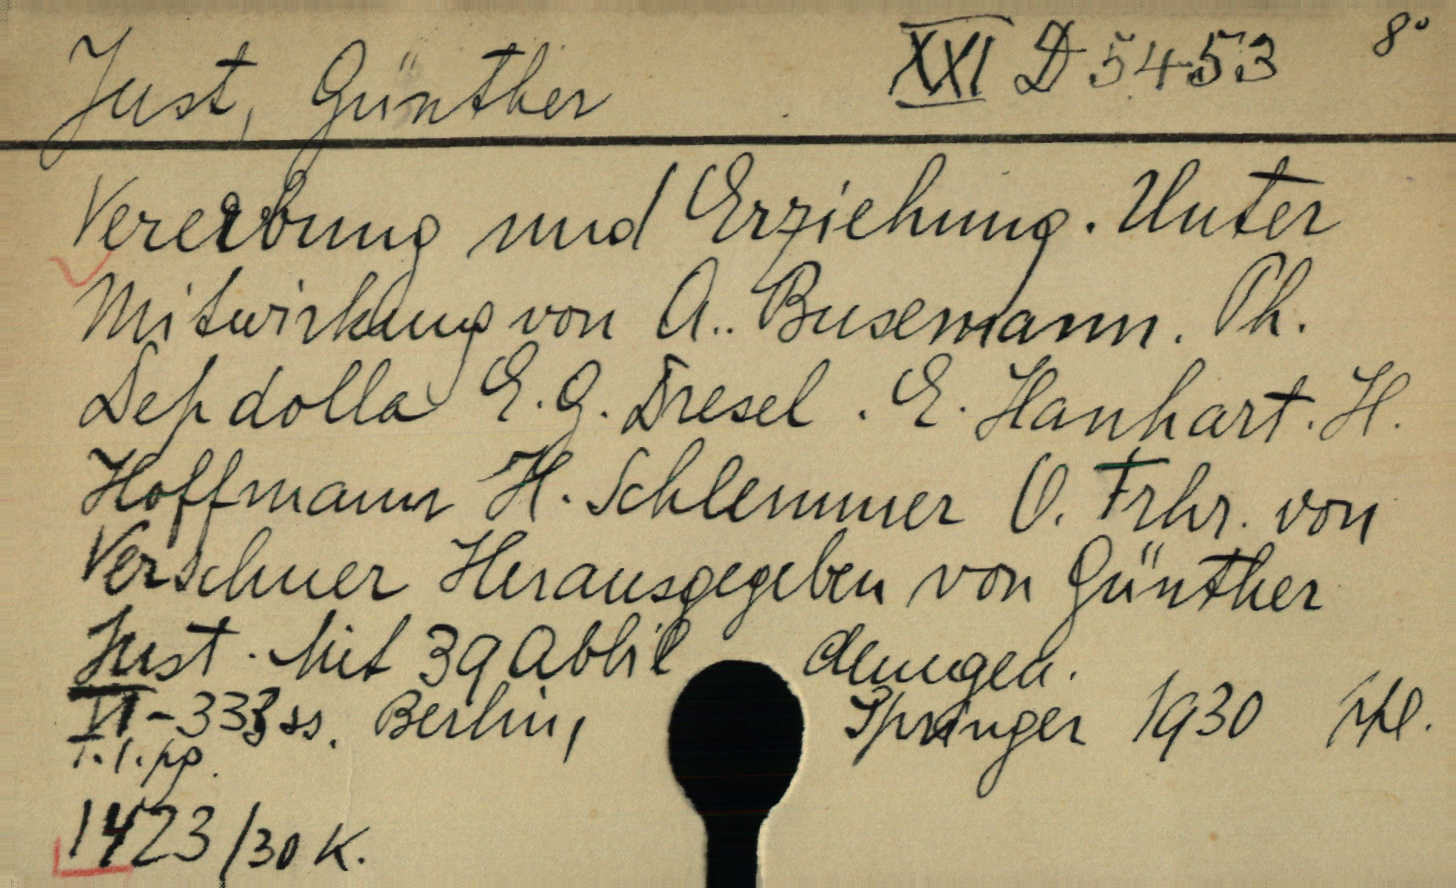 Just, Günther XXI D 5453 8°
Vererbung und Erziehung. Unter
Mitwirkung von A.. Busemann. Ph.
Depdolla E. G. Dresel. E. Hanhart. H.
Hoffmann H. Schlemmer O. Frhr. von
Verschuer Herausgegeben von Günther
Just. Mit 39 Abbil dungen.
VI-333 ss. Berlin, Springer 1930
1423/30 K.